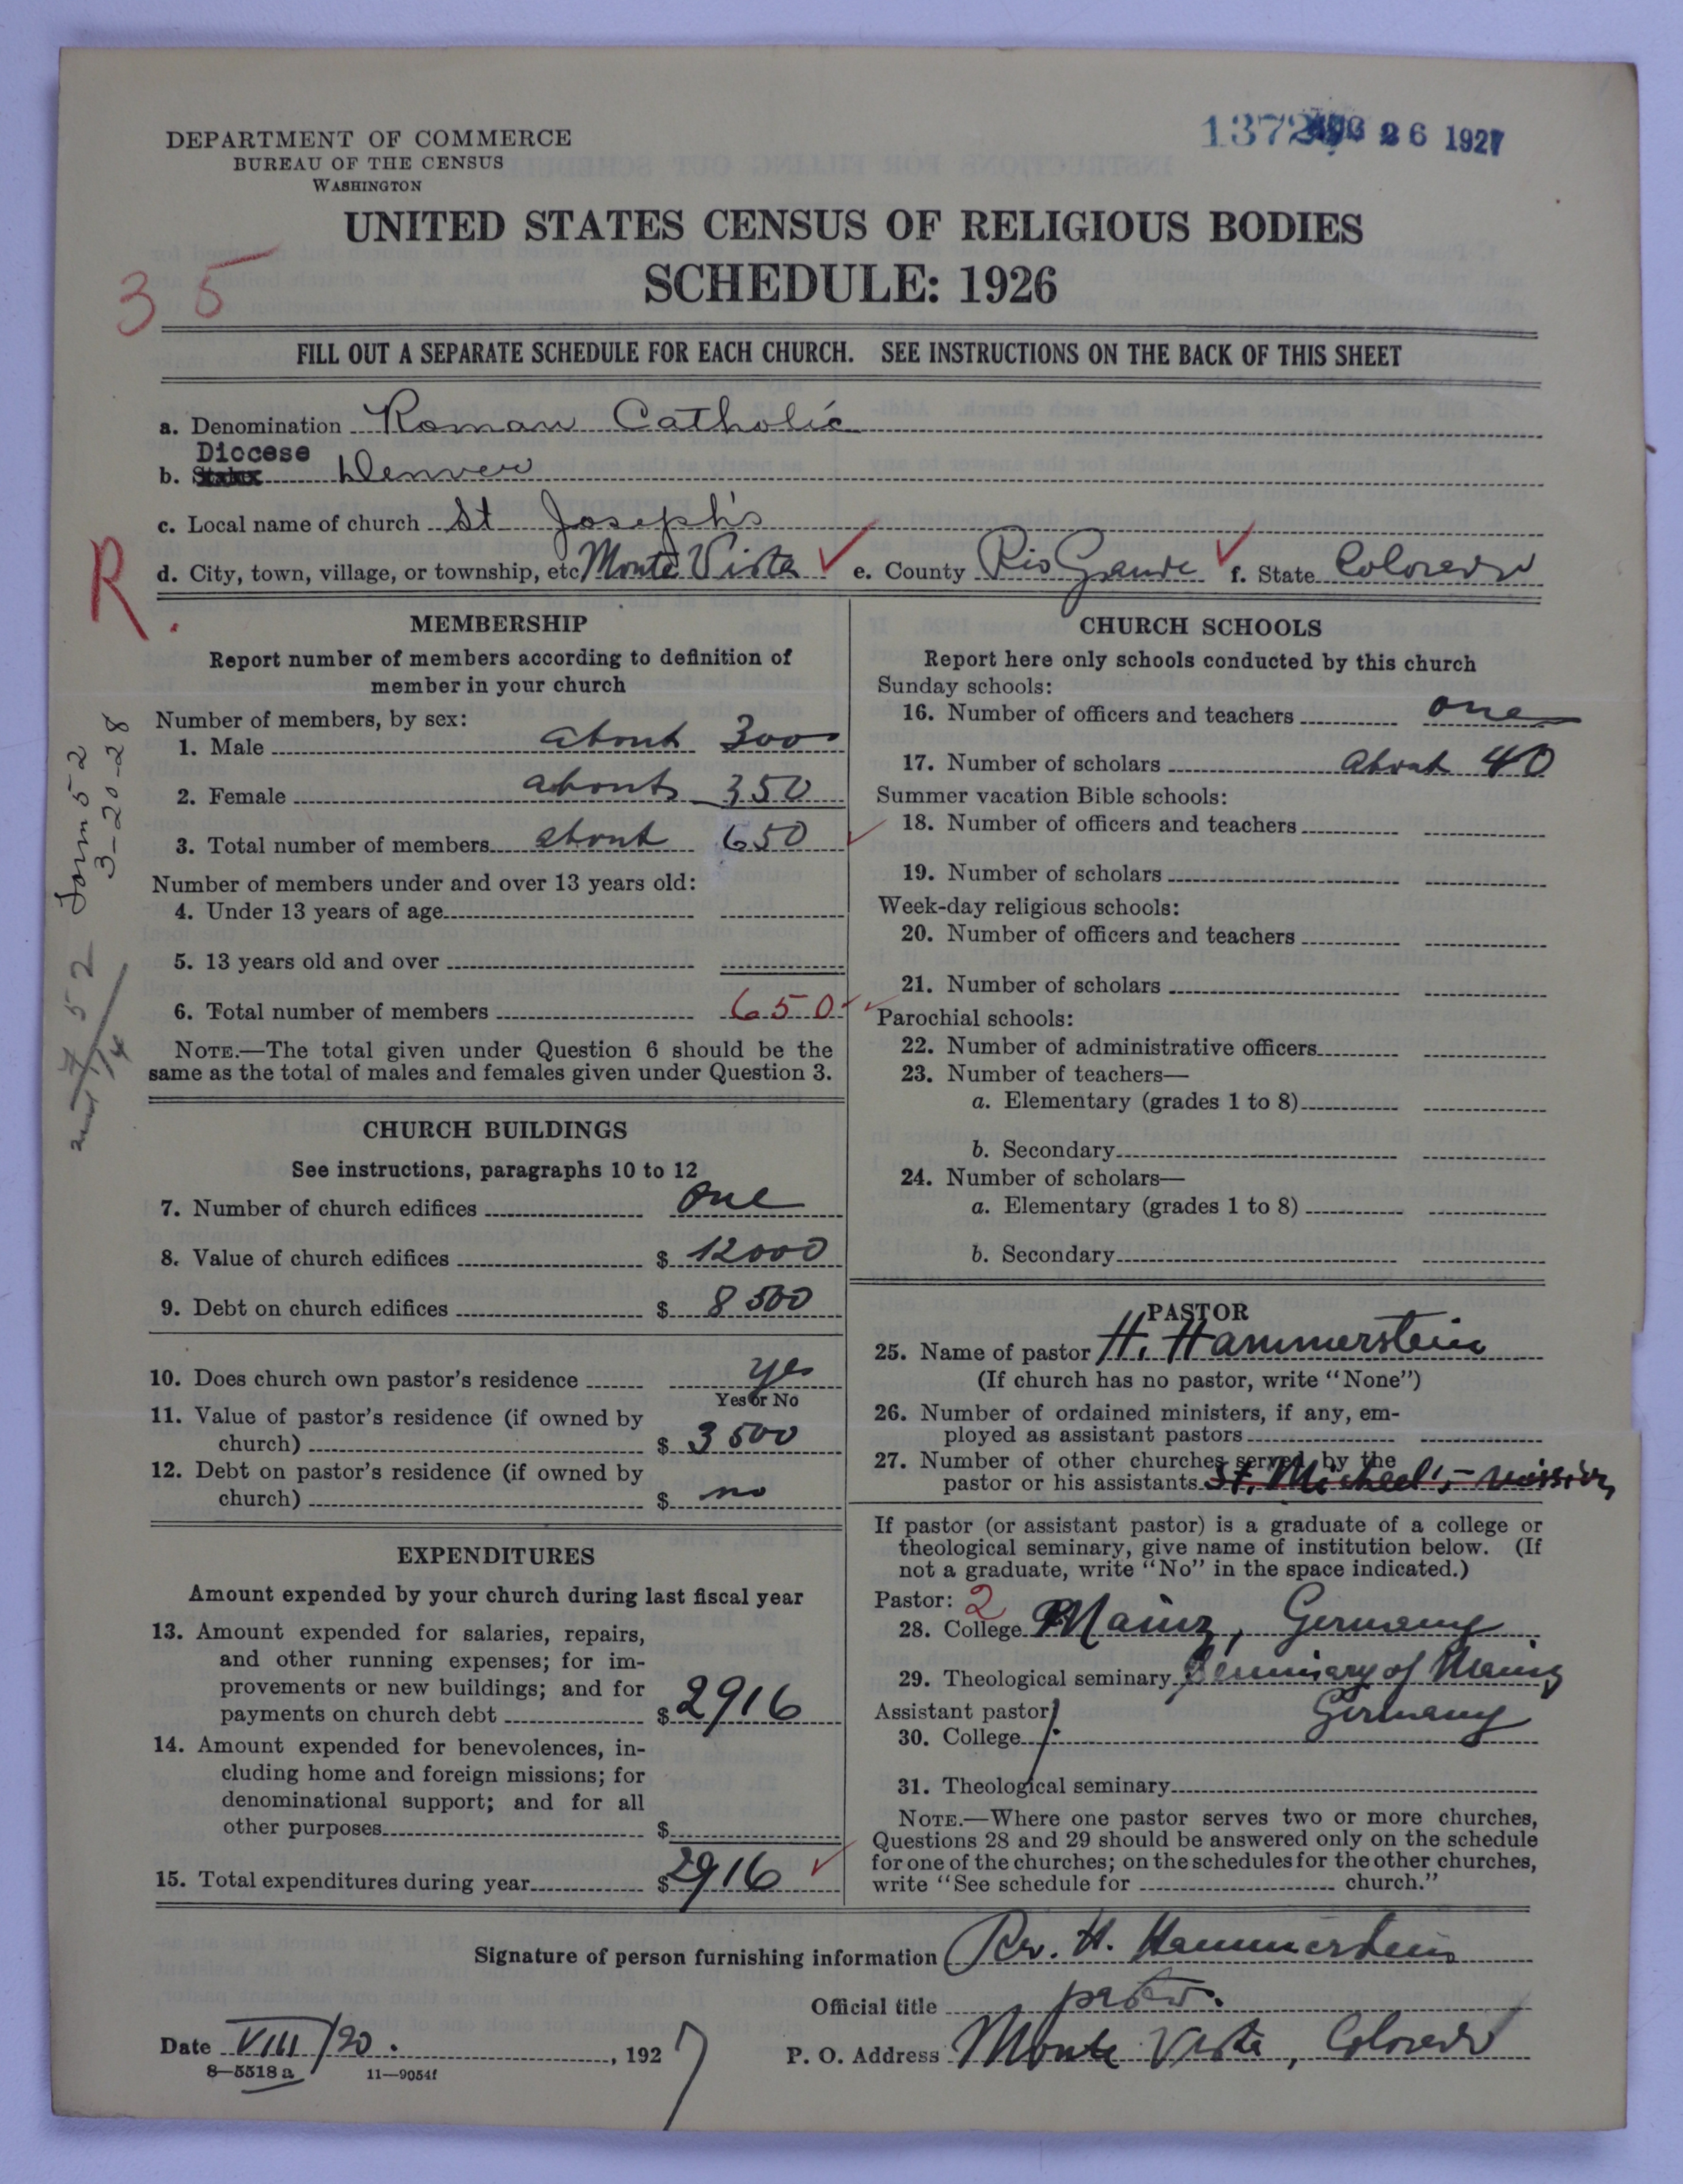 DEPARTMENT OF COMMERCE
BUREAU OF THE CENSUS
WASHINGTON
26 1927
UNITED STATES CENSUS OF RELIGIOUS BODIES
SCHEDULE: 1926
35
FILL OUT A SEPARATE SCHEDULE FOR EACH CHURCH. SEE INSTRUCTIONS ON THE BACK OF THIS SHEET
a. Denomination Roman Catholic
Diocese
b. State Denver
c. Local name of church St Joseph's
R.
d. City, town, village, or township, etc Monte Vista e. County Rio Grande f. State Colorado
MEMBERSHIP
Report number of members according to definition of
member in your church
Number of members, by sex:
1. Male about 300
2. Female about 350
3. Total number of members about 650
Number of members under and over 13 years old:
4. Under 13 years of age
5. 13 years old and over
6. Total number of members 650
NOTE.—The total given under Question 6 should be the
same as the total of males and females given under Question 3.
52
3-20-28
52
14
CHURCH BUILDINGS
See instructions, paragraphs 10 to 12
7. Number of church edifices one
8. Value of church edifices $ 12000
9. Debt on church edifices $ 8500
10. Does church own pastor's residence yes
Yes or No
11. Value of pastor's residence (if owned by
church) $ 3500
12. Debt on pastor's residence (if owned by
church) $ no
EXPENDITURES
Amount expended by your church during last fiscal year
13. Amount expended for salaries, repairs,
and other running expenses; for im-
provements or new buildings; and for
payments on church debt $ 2916
14. Amount expended for benevolences, in-
cluding home and foreign missions; for
denominational support; and for all
other purposes $
15. Total expenditures during year $ 2916
CHURCH SCHOOLS
Report here only schools conducted by this church
Sunday schools:
16. Number of officers and teachers one
17. Number of scholars about 40
Summer vacation Bible schools:
18. Number of officers and teachers
19. Number of scholars
Week-day religious schools:
20. Number of officers and teachers
21. Number of scholars
Parochial schools:
22. Number of administrative officers
23. Number of teachers—
a. Elementary (grades 1 to 8)
b. Secondary
24. Number of scholars—
a. Elementary (grades 1 to 8)
b. Secondary
PASTOR
25. Name of pastor H. Hammerstein
(If church has no pastor, write "None")
26. Number of ordained ministers, if any, em-
ployed as assistant pastors
27. Number of other churches served by the
pastor or his assistants St. Micheel's - mission
If pastor (or assistant pastor) is a graduate of a college or
theological seminary, give name of institution below. (If
not a graduate, write "No" in the space indicated.)
Pastor: 2
28. College Mainz, Germany
29. Theological seminary Seminary of Mainz
Assistant pastor: Germany
30. College
31. Theological seminary
NOTE.—Where one pastor serves two or more churches,
Questions 28 and 29 should be answered only on the schedule
for one of the churches; on the schedules for the other churches,
write "See schedule for church."
Signature of person furnishing information Rev. H. Hammerstein
Official title pastor.
Date VIII/20. , 1927 P. O. Address Monte Vista, Colorado
8—5518a 11—9054f